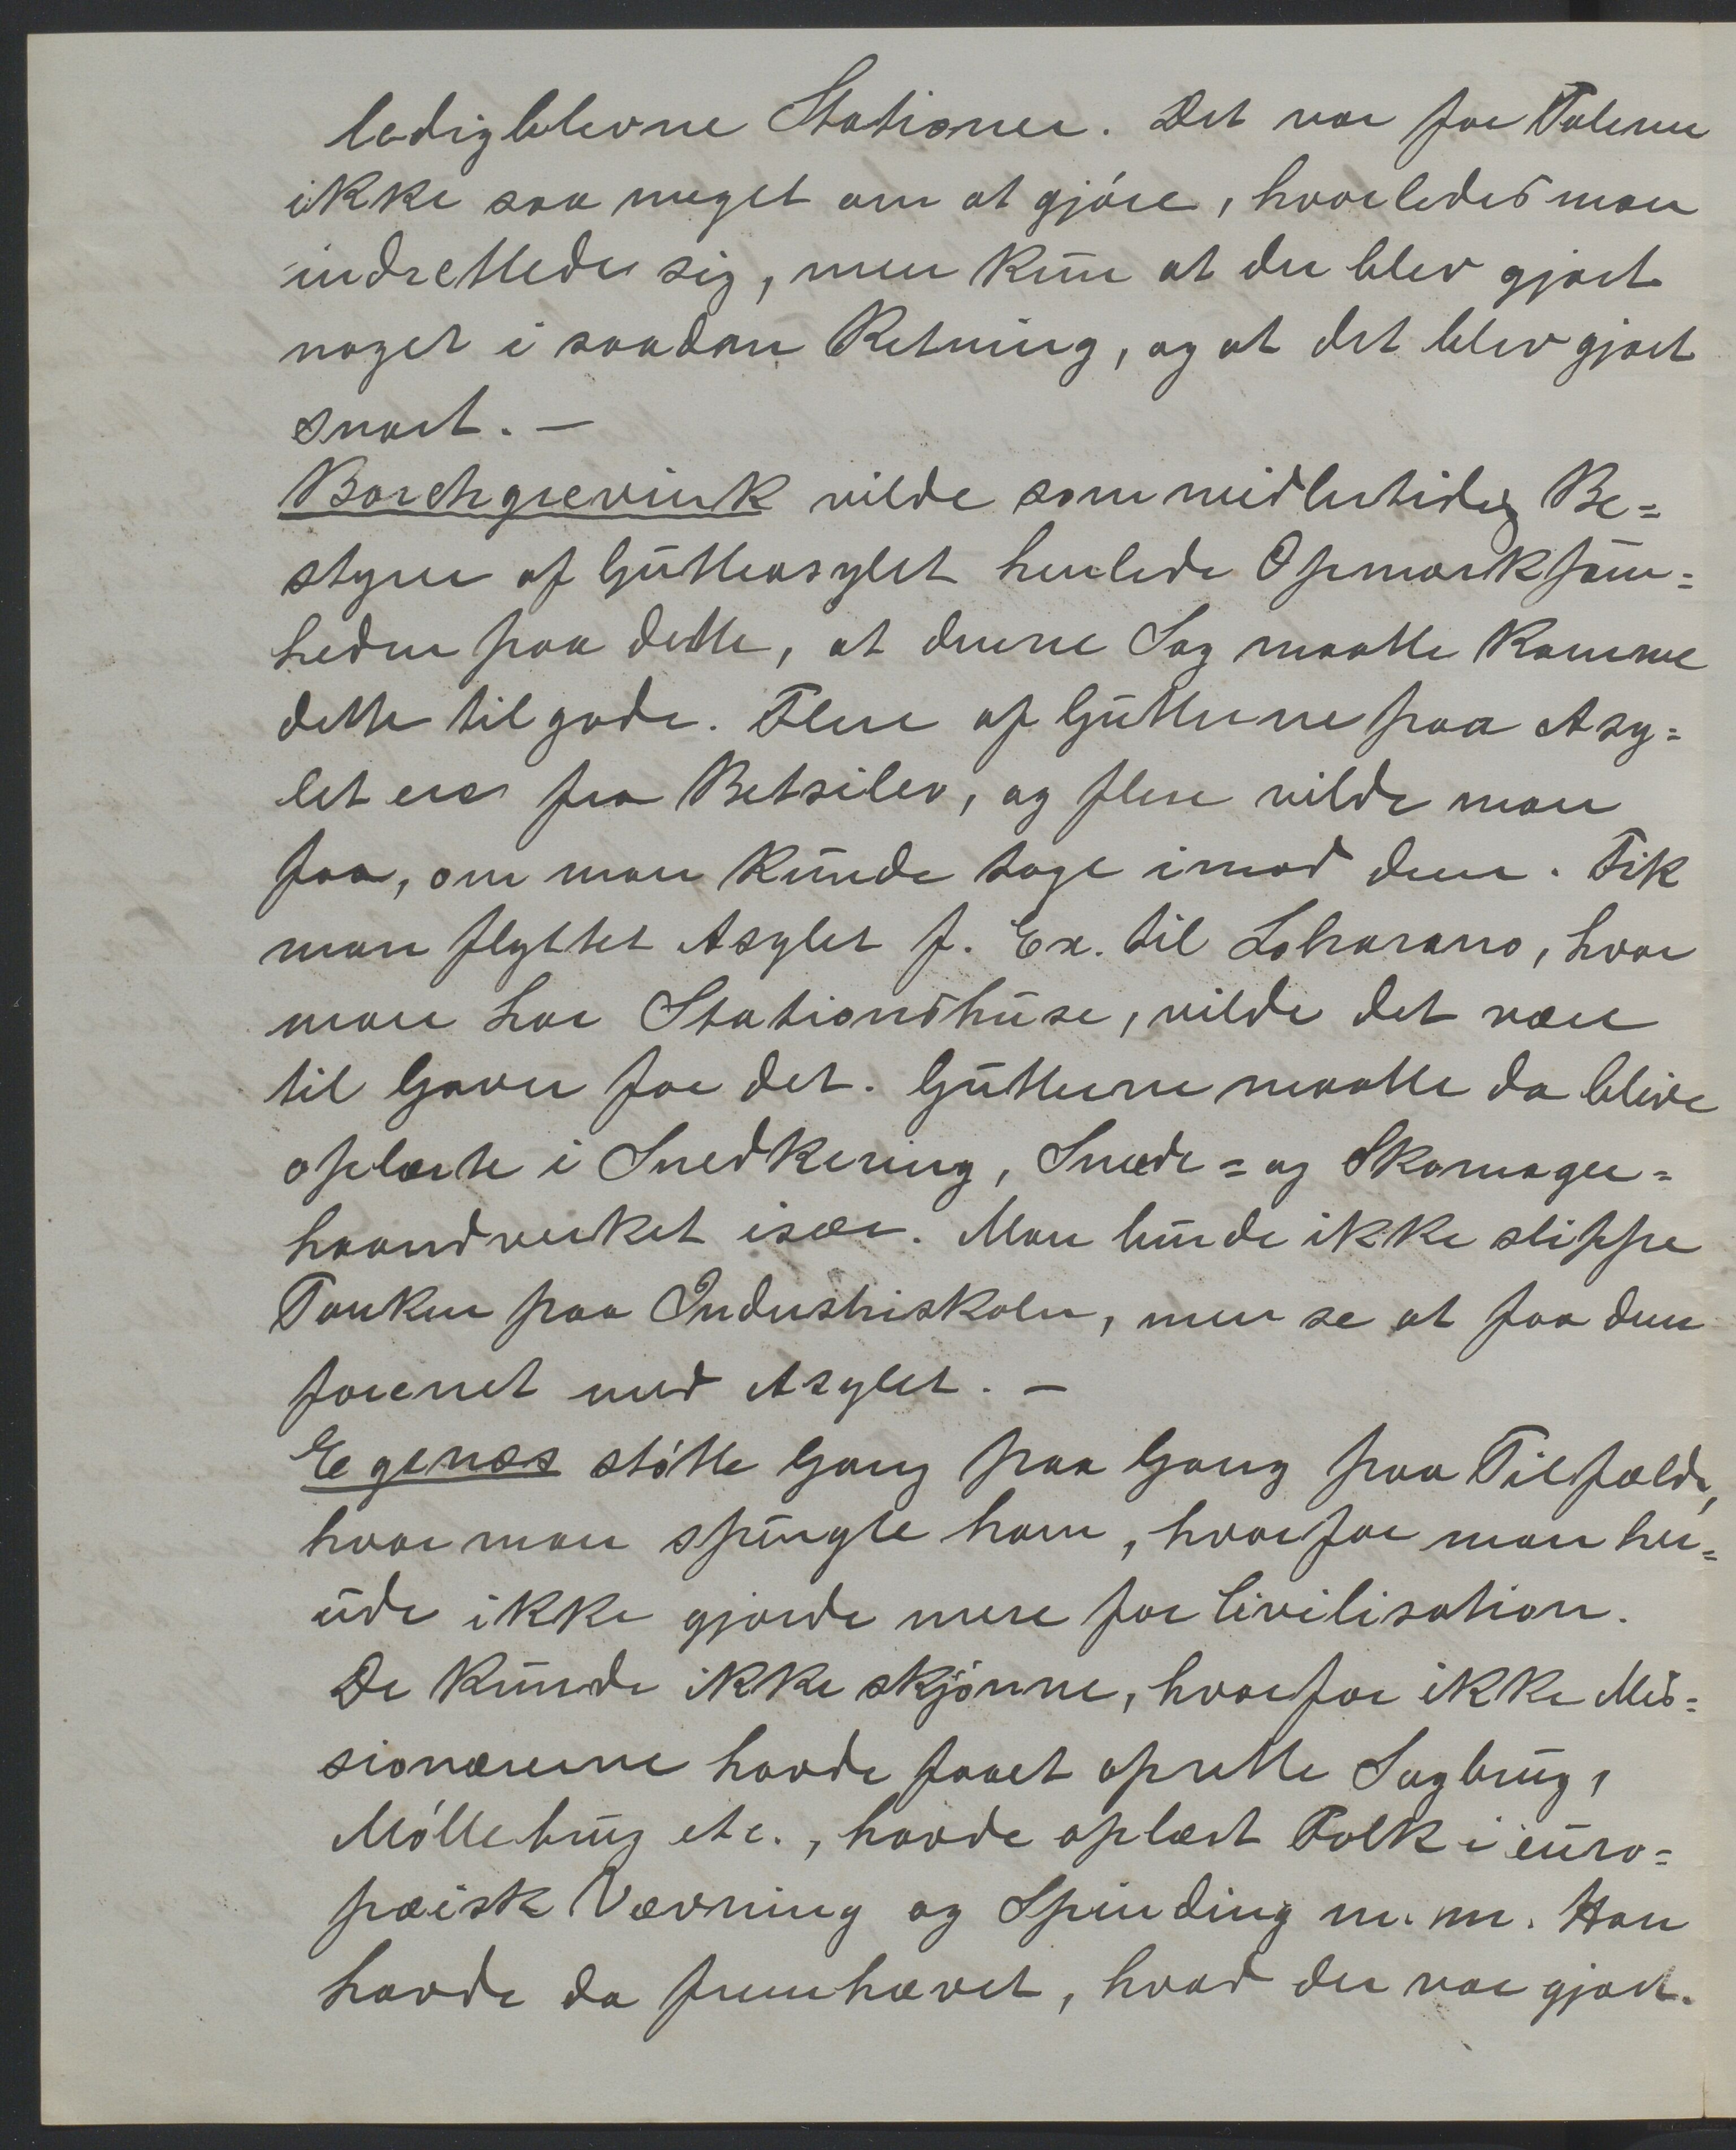 ledigblevne Stationer. Det var for Taleren
ikke saa meget om at gjóre, hvorledes man
indrettede sig, men kun at der blev gjort
noget i saadan Retning, og at det blev gjort
snart. —
Borchgrevink vilde som midlertidig Be=
styrer af Gutteasylet henlede Opmærksom=
heden paa dette, at denne Sag maatte komme
dette tilgode. Flere af Gutterne paa Asy=
let ere fra Betsileo, og flere vilde man
faa, om man kunde tage imod dem. Fik
man flyttet Asylet f. Ex. til Loharano, hvor
man har Stationshuse, vilde det være
til Gavn for det. Gutterne maatte da blive
oplærte i Snedkering, Smede= og Skomager=
haandverket især. Man burde ikke slippe
Tanken paa Industriskolen, men se at faa den
forenet med Asylet. —
Egenæs stötte Gang paa Gang paa Tilfælde,
hvor man spurgte ham, hvorfor man her=
ude ikke gjorde mere for Civilisation.
De kunde ikke skjönne, hvorfor ikke Mis=
sionærerne havde faaet oprette Sagbrug,
Móllebrug etc., havde oplært Folk i euro=
pæisk Vævning og Spinding m. m. Han
havde da fremhævet, hvad der var gjort.